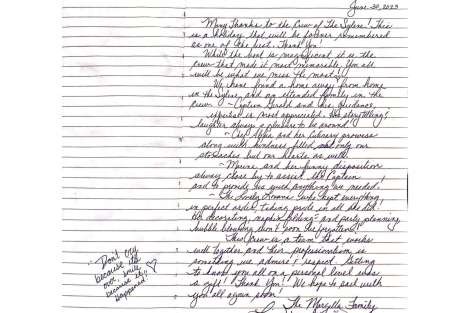 June 30, 2023
Many thanks to the Crew of the Sylene! This
is a holiday that will be forever remembered
as one of the best. Thank You!
While the boat is magnificent it is the
crew that made it most memorable. You all
will be what we miss the most!
We have found a home away from home
in the Sylene, and an extended family in the
crew - Captain Gerald and his guidance,
expertise is most appreciated. His storytelling &
laughter always a pleasure to be around!
- Chef Alpha and her culinary prowess
along with kindness filled not only our
stomaches but our hearts as well.
- and her funny disposition
always close by to assist the Captain
and to provide us with anything we needed!
- The lovely who kept everything
in perfect order taking pride in all she did.
decorating, napkin folding and party planning
bubble blowing won't soon be forgotten!
This crew is a team that works
well together and their professionalism is
something we admire & respect. Getting
to know you all on a personal level was
a gift! Thank You! We hope to sail with
you all again soon!
The Family
"Don't cry
because it's
over, smile
because it
happened!"